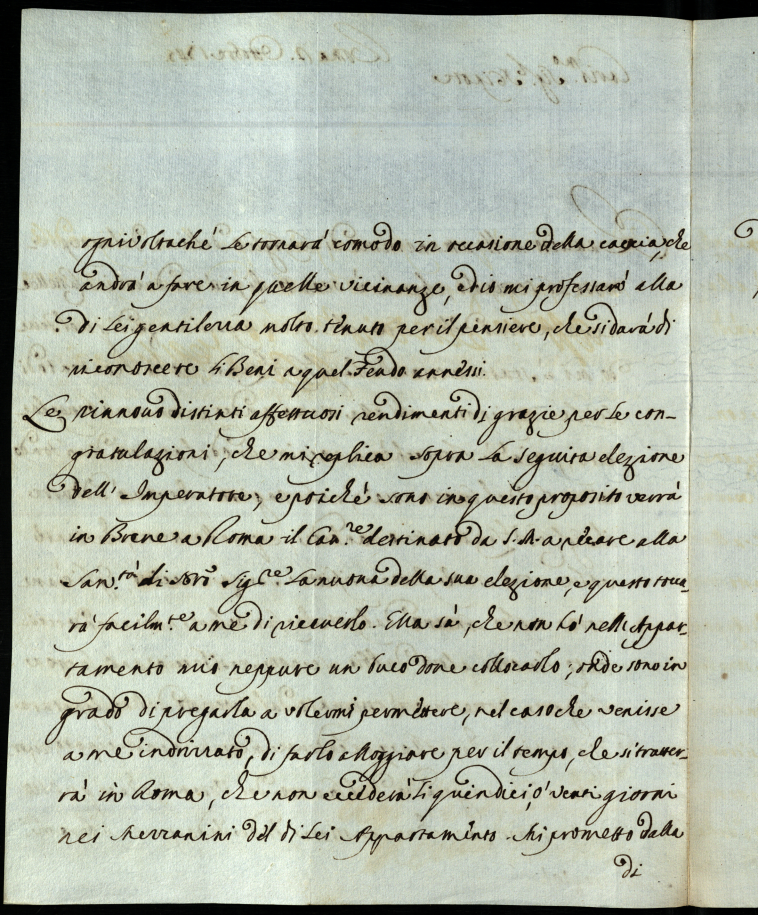 ogni volta ché Le tornará comodo in occasione della caccia, che
andrá a fare in quelle vicinanze, ed io mi professaró alla
di Lei gentilezza molto tenuto per il pensiere, che si dará di
riconoscere li Beni a quel Feudo annessi.
Le rinnovo distinti affettuosi rendimenti di grazie per le con-
gratulazioni, che mi replica sopra la seguita elezione
dell' Imperatore; e poiché sono in questo proposito verrá
in Breve a Roma il Cav.re destinato da S. M. a recare alla
San.tá di Nro Sig.re la nuova della sua elezione, e questo tocca-
rá facilm.te a me di riceverlo. Ella sá, che non hó nell' Appar-
tamento mio neppure un buco dove collocarlo; onde sono in
grado di pregarla a volermi permettere, nel caso che venisse
a me indrizzato, di farlo alloggiare per il tempo, che si tratter-
rá in Roma, che non eccederá li quindici, ó venti giorni
nei Mezzanini del di Lei Appartamento. Mi prometto dalla
di